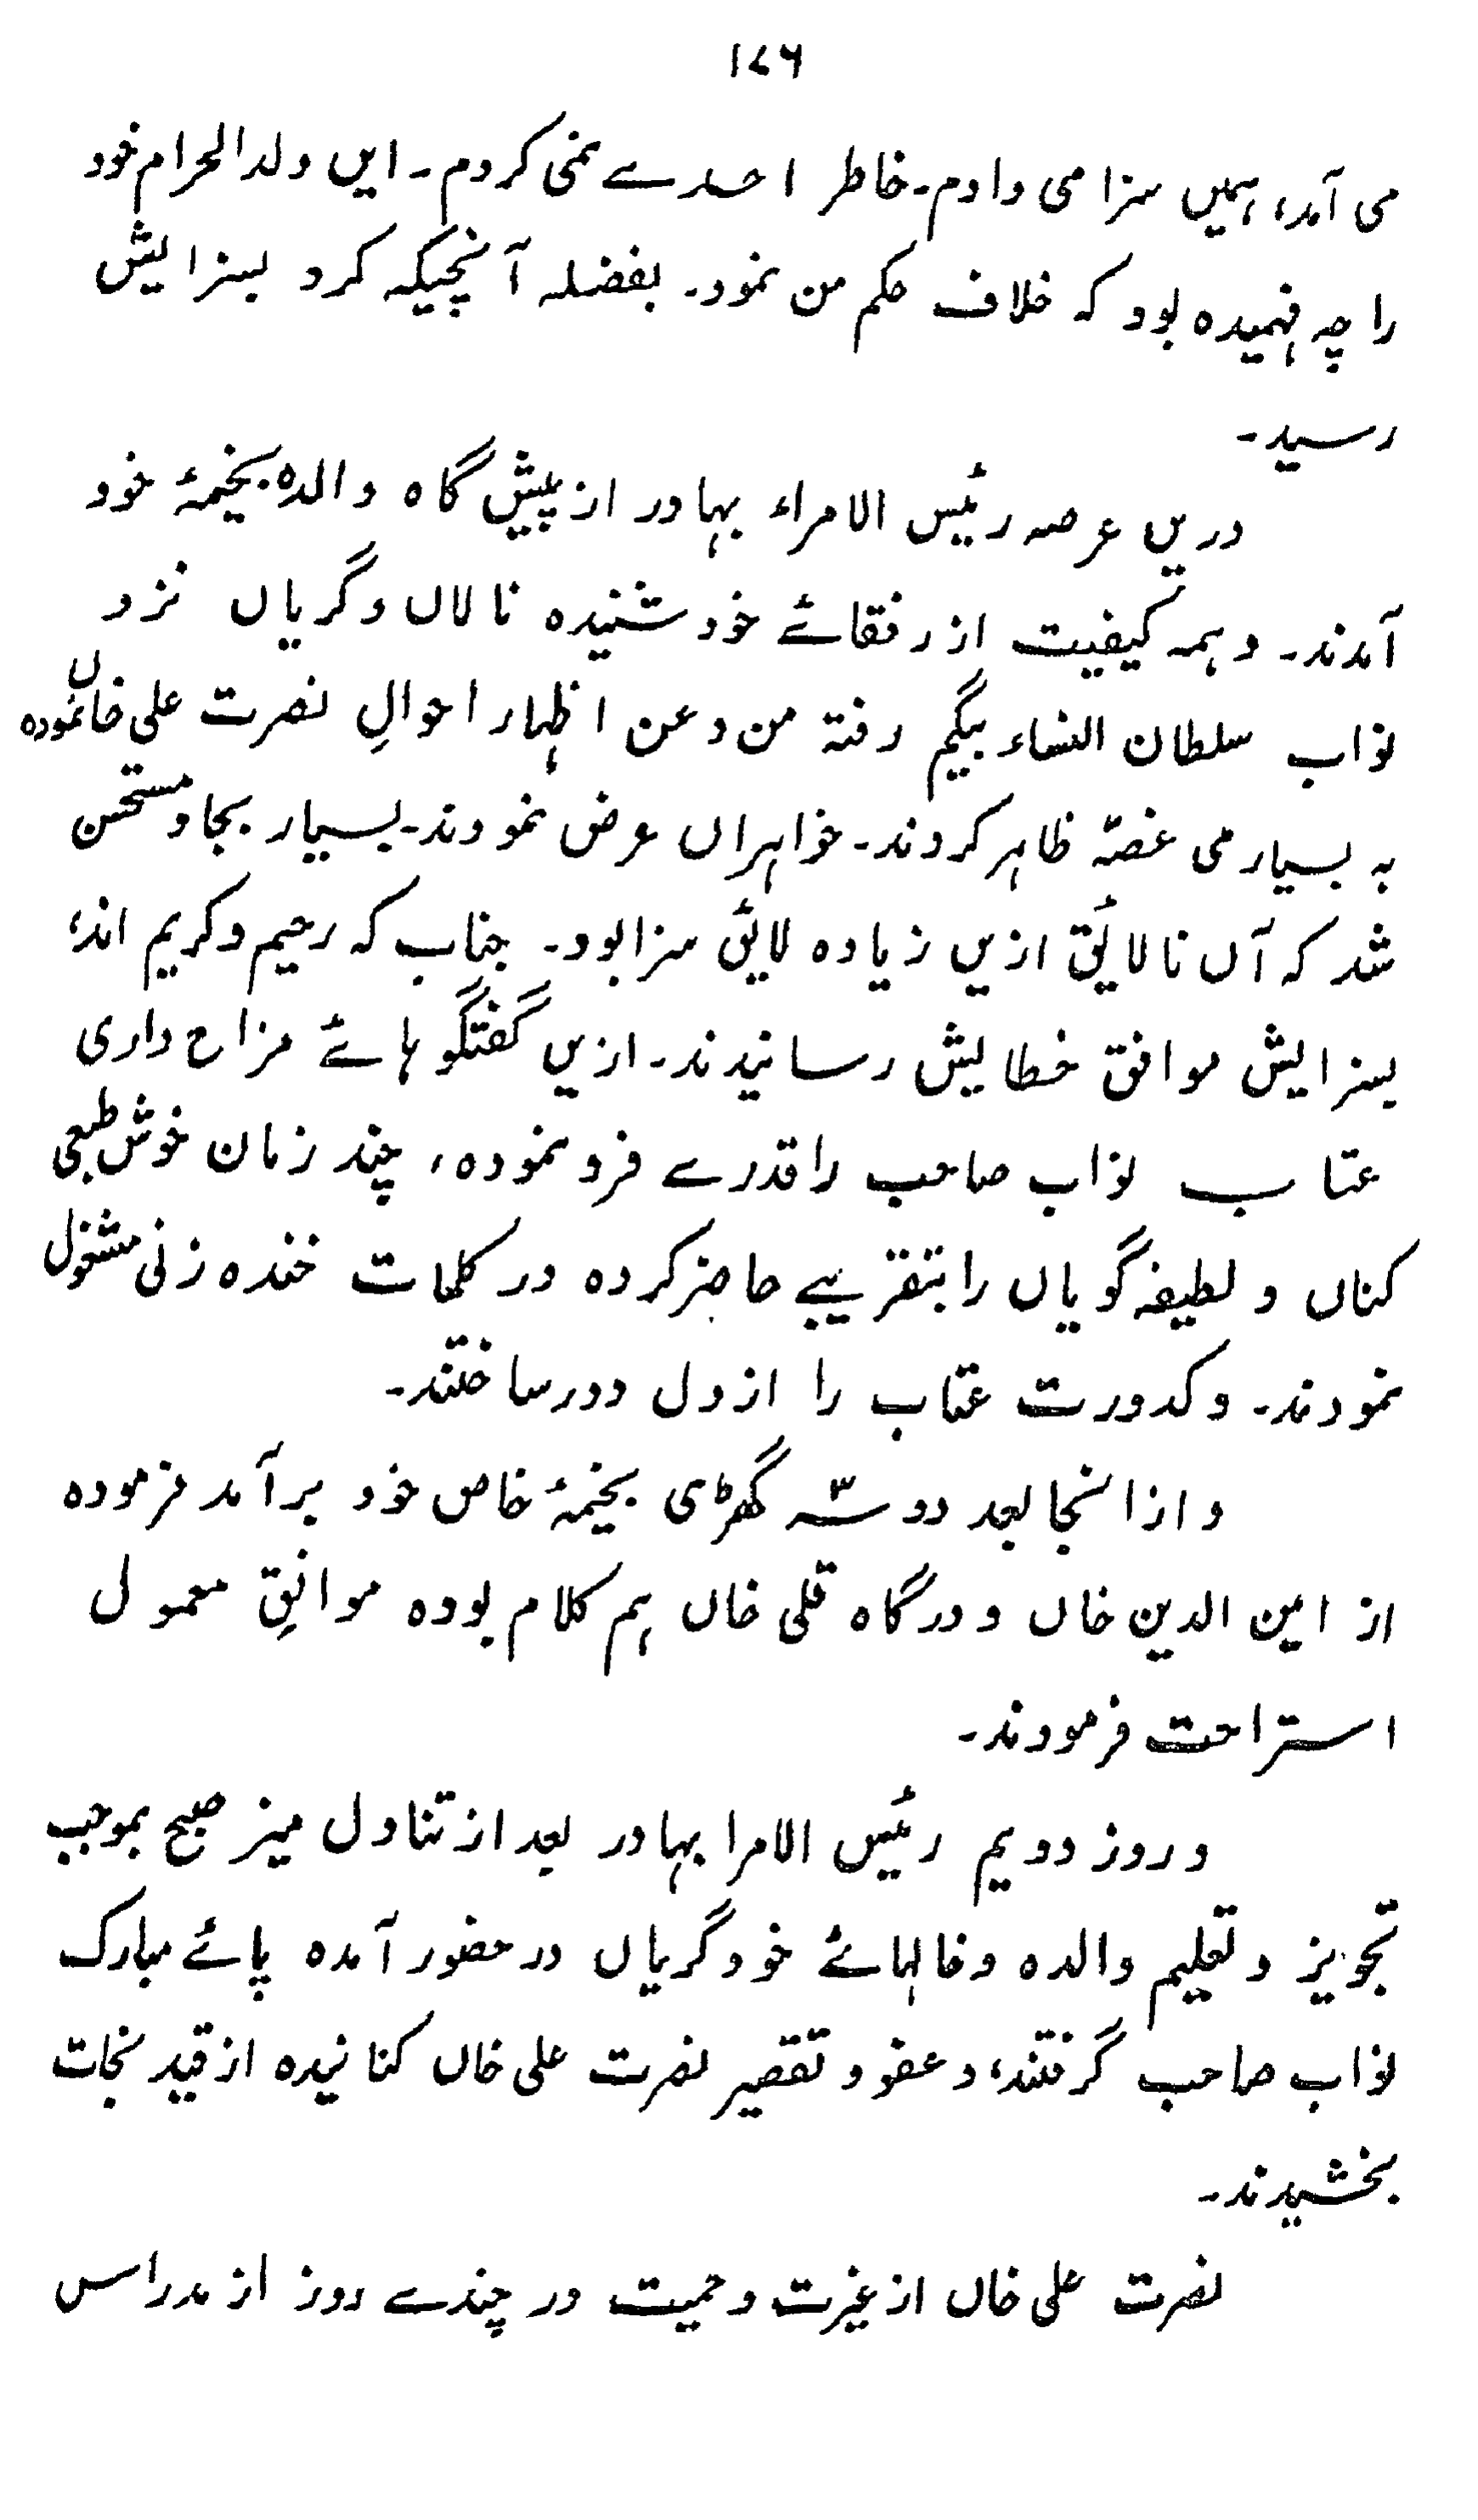 ۱۷۶
می آمد، ہمیں سزا می دادم۔ خاطر احدے نمی کردم۔ ایں ولد الحرام خود
را چہ فہمیدہ بود کہ خلاف حکم من نمود۔ بفضلہ آنچیکہ کرد بسزایش
رسید۔
دریں عرصہ رئیس الامراء بہادر از پیش گاہ والدہ بخیمۂ خود
آمدند۔ وہمہ کیفیت از رفقائے خود شنیدہ نالاں و گریاں نزد
نواب سلطان النساء بیگم رفتہ من وعن اظہار احوالِ نصرت علی خاں نمودہ
بہ بسیار می غصہ ظاہر کردند۔ خواہراں عرض نمودند۔ بسیار بجا و مستحسن
شد کہ آں نالائق ازیں زیادہ لایق سزا بود۔ جناب کہ رحیم و کریم اند،
بسزایش موافق خطایش رسانیدند۔ ازیں گفتگوہائے مزاح داری
عتاب نواب صاحب را قدرے فرو نمودہ، چند زمان خوش طبعی
کناں و لطیفہ گویاں را بتقریبے حاضر کردہ در کلمات خندہ زنی مشغول
نمودند۔ وکدورت عتاب را از دل دور ساختند۔
و ازانجا بعد دو سہ گھڑی بخیمۂ خاص خود برآمد فرمودہ
از امین الدین خاں و درگاہ قلی خاں ہم کلام بودہ موافقِ معمول
استراحت فرمودند۔
و روز دویم رئیس الامرا بہادر بعد از تناول میز صبح بموجب
تجویز و تعلیم والدہ وخالہائے خود گریاں در حضور آمدہ پائے مبارک
نواب صاحب گرفتند، و عفو و تقصیر نصرت علی خاں کنانیدہ از قید نجات
بخشیدند۔
نصرت علی خاں از غیرت و حمیت در چندے روز از مدراس